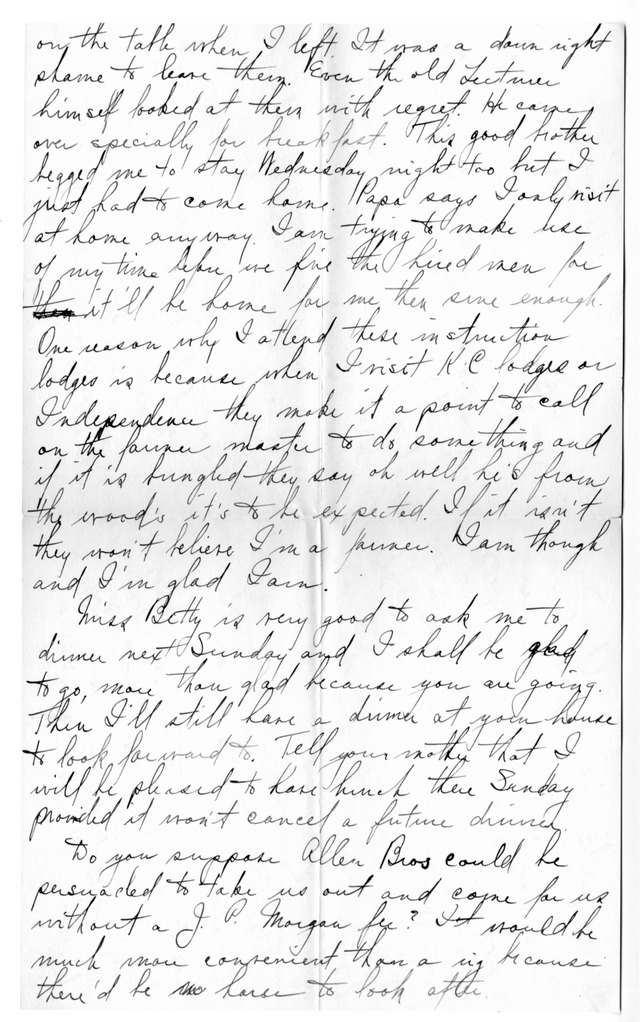 on the table when I left. It was a down right
shame to leave them. Even the old Lecturer
himself looked at them with regret. He came
over specially for breakfast. This good brother
begged me to stay Wednesday night too but I
just had to come home. Papa says I only visit
at home anyway. I am trying to make use
of my time before we fire the hired men for
then it'll be home for me then sure enough.
One reason why I attend these instruction
lodges is because when I visit K C lodges or
Independence they make it a point to call
on the farmer master to do something and
if it is bungled they say oh well he's from
the wood's it's to be expected. If it isn't
they won't believe I'm a farmer. I am though
and I'm glad I am.
Miss Betty is very good to ask me to
dinner next Sunday and I shall be glad
to go, more than glad because you are going.
Then I'll still have a dinner at your house
to look forward to. Tell your mother that I
will be pleased to have lunch there Sunday
provided it won't cancel a future dinner.
Do you suppose Allen Bros could be
persuaded to take us out and come for us
without a J. P. Morgan fee? It would be
much more convenient than a rig because
there'd be no horse to look after.